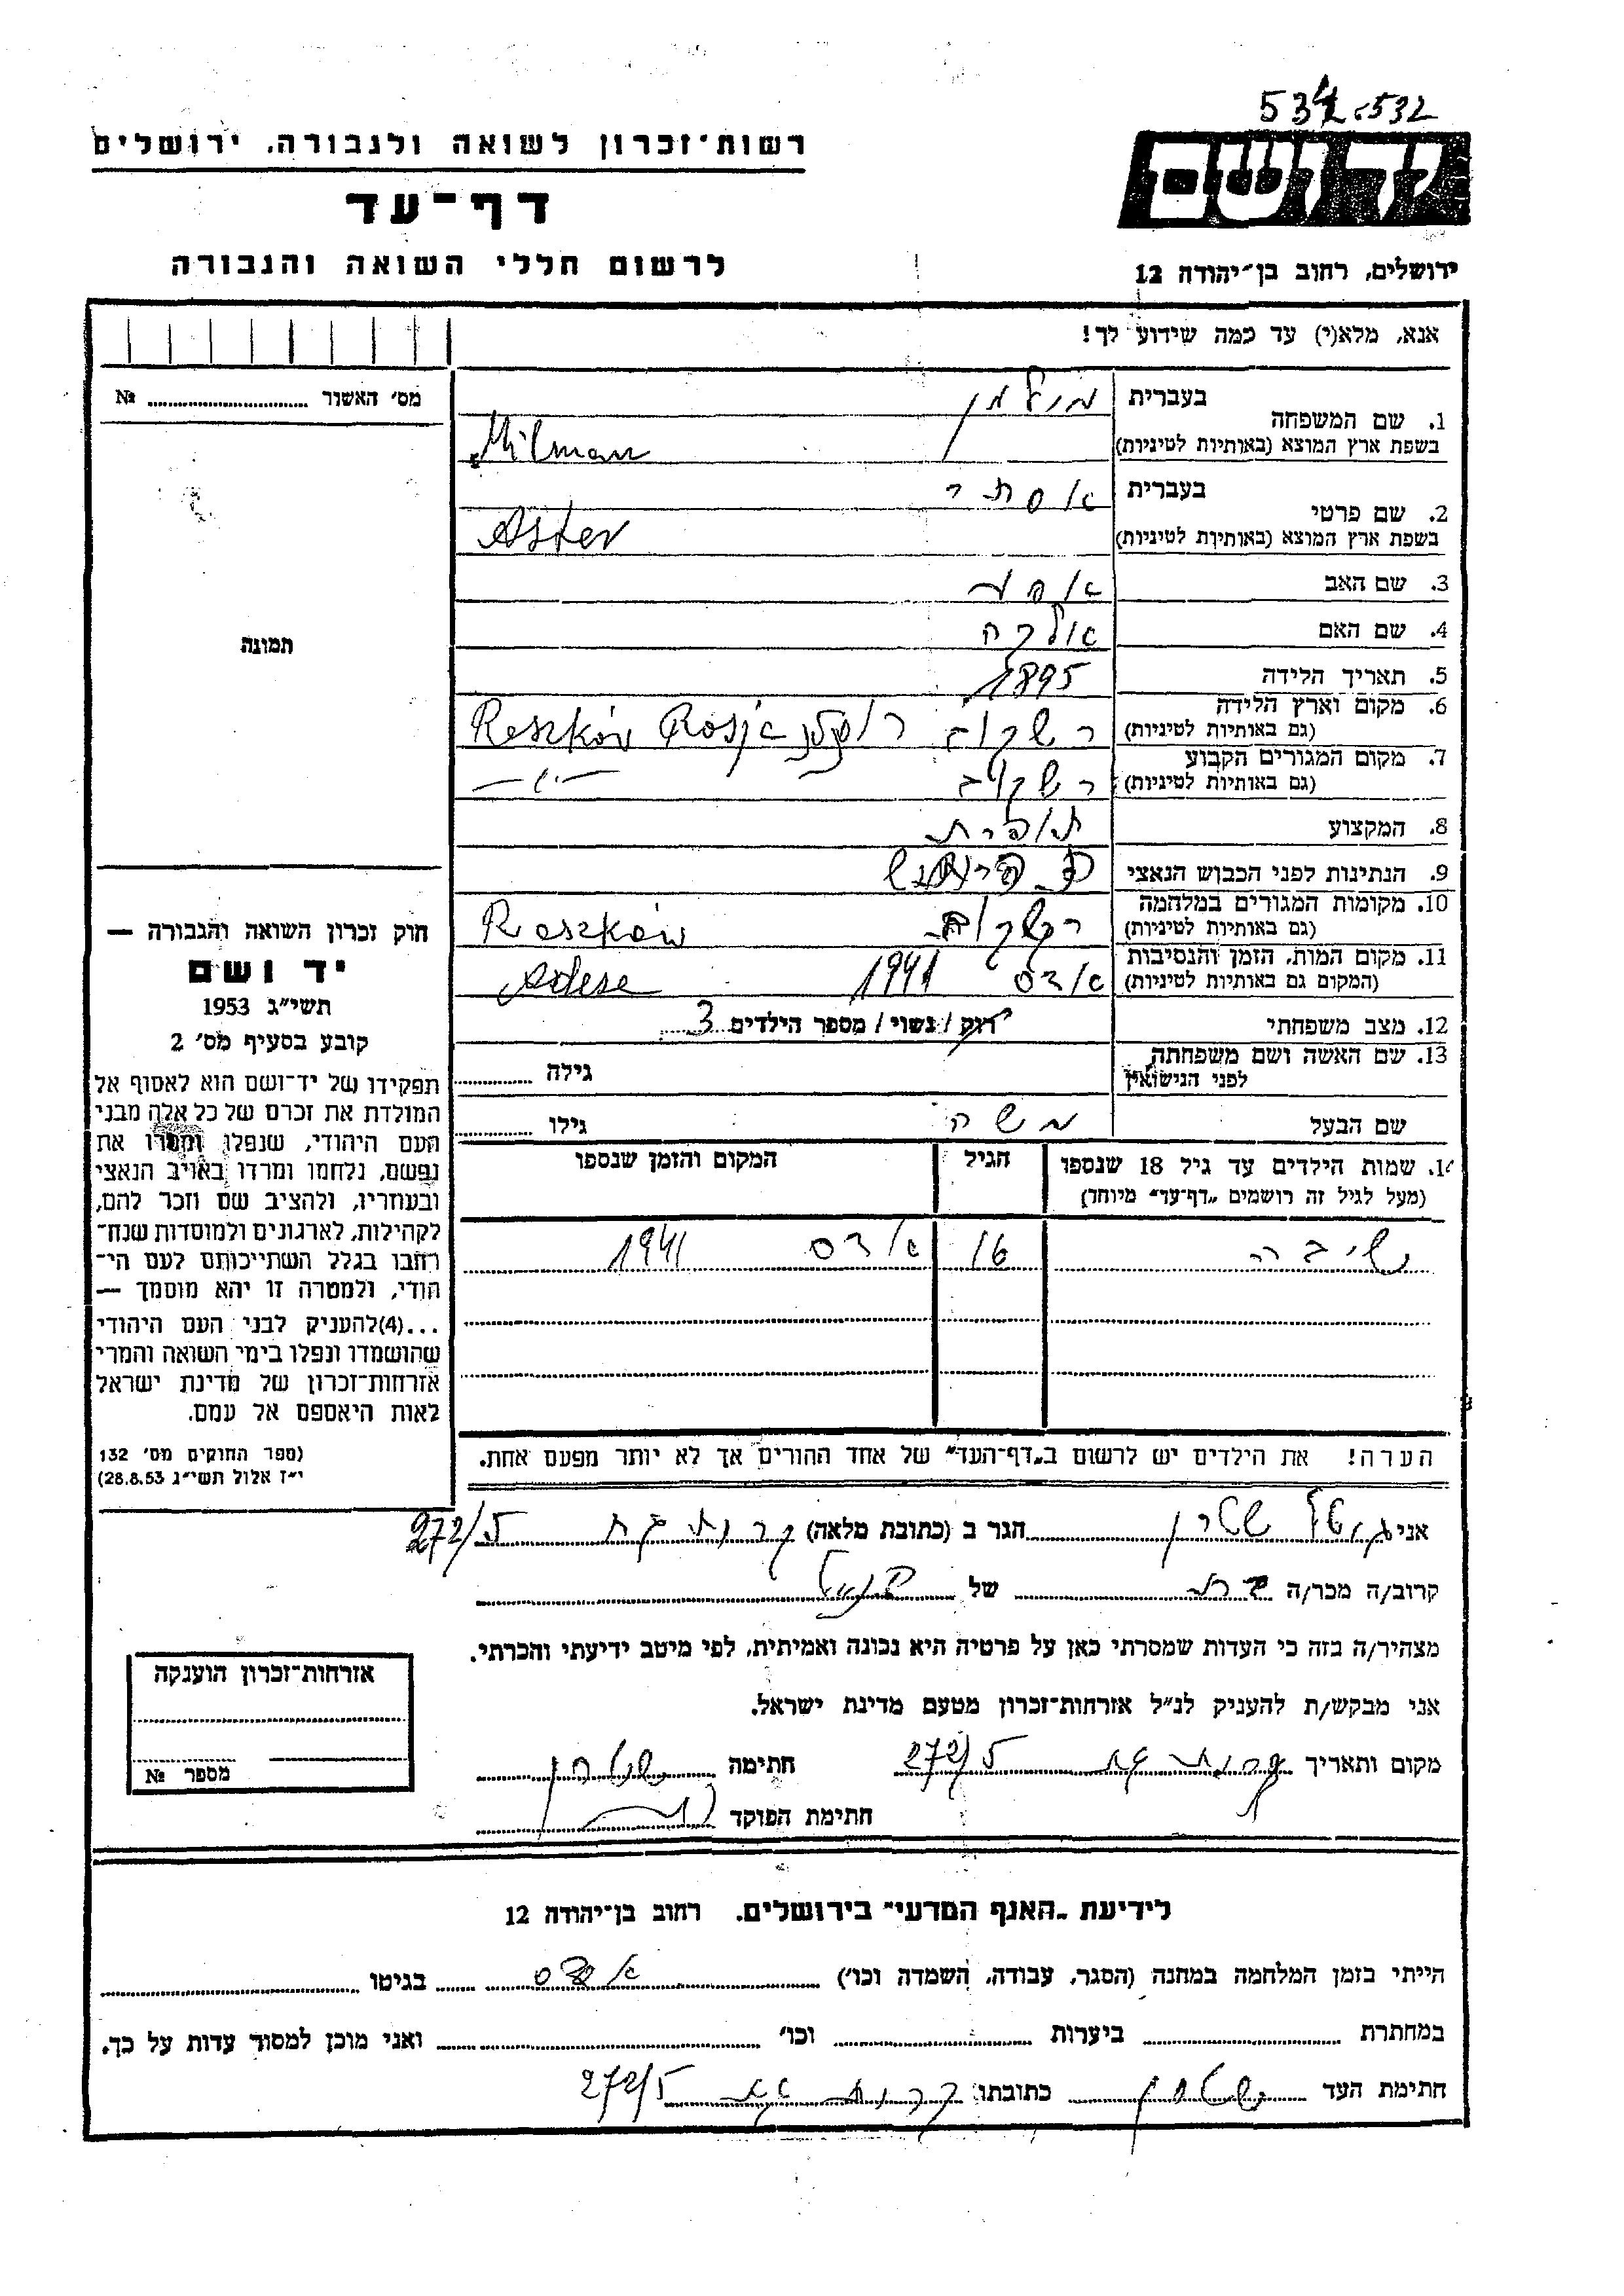 534.532
רשות־זכרון לשואה ולגבורה, ירושלים
יד ושם
דף־עד
לרשום חללי השואה והגבורה
ירושלים, רחוב בן־יהודה 12
אנא, מלא(י) עד כמה שידוע לך!
מס׳ האשור № 
1. שם המשפחה בעברית מילמן
בשפת ארץ המוצא (באותיות לטיניות) Milman
2. שם פרטי בעברית אסתר
בשפת ארץ המוצא (באותיות לטיניות) Aster
3. שם האב
4. שם האם
תמונה
5. תאריך הלידה 1895
6. מקום וארץ הלידה (גם באותיות לטיניות) רשקוב Reszków Rosja
7. מקום המגורים הקבוע (גם באותיות לטיניות) רשקוב —〃—
8. המקצוע תופרת
9. הנתינות לפני הכבוש הנאצי
10. מקומות המגורים במלחמה (גם באותיות לטיניות) רשקוב Roszków
11. מקום המות, הזמן והנסיבות (המקום גם באותיות לטיניות) אדס 1941 Adese
12. מצב משפחתי רוק / נשוי / מספר הילדים 3
13. שם האשה ושם משפחתה לפני הנישואין גילה
שם הבעל משה גילו
14. שמות הילדים עד גיל 18 שנספו הגיל המקום והזמן שנספו
(מעל לגיל זה רושמים „דף־עד״ מיוחד)
16 אדס 1941
הערה! את הילדים יש לרשום ב„דף־העד״ של אחד ההורים אך לא יותר מפעם אחת.
חוק זכרון השואה והגבורה —
יד ושם
תשי״ג 1953
קובע בסעיף מס׳ 2
תפקידו של יד־ושם הוא לאסוף אל
המולדת את זכרם של כל אלה מבני
העם היהודי, שנפלו ומסרו את
נפשם, נלחמו ומרדו באויב הנאצי
ובעוזריו, ולהציב שם וזכר להם,
לקהילות, לארגונים ולמוסדות שנח־
רחבו בגלל השתייכותם לעם הי־
הודי, ולמטרה זו יהא מוסמך —
...(4)להעניק לבני העם היהודי
שהושמדו ונפלו בימי השואה והמרי
אזרחות־זכרון של מדינת ישראל
לאות היאספם אל עמם.
(ספר החוקים מס׳ 132
י״ז אלול תשי״ג 28.8.53)
אני שטרן הגר ב (כתובת מלאה) קרית גת 272/5
קרוב/ה מכר/ה של
מצהיר/ה בזה כי העדות שמסרתי כאן על פרטיה היא נכונה ואמיתית, לפי מיטב ידיעתי והכרתי.
אני מבקש/ת להעניק לנ״ל אזרחות־זכרון מטעם מדינת ישראל.
מקום ותאריך קרית גת 272/5 חתימה שטרן
חתימת הפוקד
אזרחות־זכרון הוענקה
מספר №
לידיעת „האגף המדעי״ בירושלים, רחוב בן־יהודה 12
הייתי בזמן המלחמה במחנה (הסגר, עבודה, השמדה וכו׳) אדס בגיטו
במחתרת ביערות וכו׳ ואני מוכן למסור עדות על כך.
חתימת העד שטרן כתובתו קרית גת 272/5